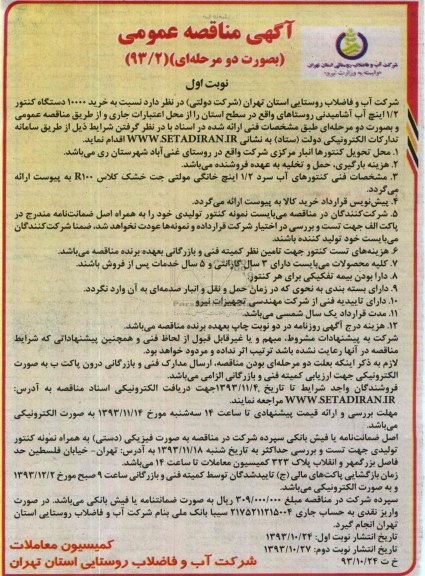 آگهی مناقصه عمومی
(بصورت دو مرحله‌ای)(۹۳/۲)
شرکت آب و فاضلاب روستایی استان تهران
وابسته به وزارت نیرو
نوبت اول
شرکت آب و فاضلاب روستایی استان تهران (شرکت دولتی) در نظر دارد نسبت به خرید ۱۰۰۰۰ دستگاه کنتور
۱/۲ اینچ آب آشامیدنی روستاهای واقع در سطح استان را از محل اعتبارات جاری و از طریق مناقصه عمومی
و بصورت دو مرحله‌ای طبق مشخصات فنی ارائه شده در اسناد با در نظر گرفتن شرایط ذیل از طریق سامانه
تدارکات الکترونیکی دولت (ستاد) به نشانی WWW.SETADIRAN.IR اقدام نماید.
۱. محل تحویل کنتورها انبار مرکزی شرکت واقع در روستای غنی‌آباد شهرستان ری می‌باشد.
۲. هزینه بارگیری، حمل و تخلیه به عهده فروشنده می‌باشد.
۳. مشخصات فنی کنتورهای آب سرد ۱/۲ اینچ خانگی مولتی جت خشک کلاس R۱۰۰ به پیوست ارائه
می‌گردد.
۴. پیش‌نویس قرارداد خرید کالا به پیوست ارائه می‌گردد.
۵. شرکت‌کنندگان در مناقصه می‌بایست نمونه کنتور تولیدی خود را به همراه اصل ضمانت‌نامه مندرج در
پاکت الف جهت تست و بررسی در اختیار شرکت قرارداده و نمونه‌ها عودت نخواهد شد، ضمنا شرکت‌کنندگان
می‌بایست خود تولید کننده باشند.
۶. هزینه‌های تست کنتور جهت تامین نظر کمیته فنی و بازرگانی بعهده برنده مناقصه می‌باشد.
۷. کلیه محصولات می‌بایست دارای ۳ سال گارانتی و ۵ سال خدمات پس از فروش باشند.
۸. دارا بودن بیمه تفکیکی برای هر کنتور
۹. دارای بسته بندی به نحوی که در زمان حمل و نقل و انبار صدمه‌ای به آن وارد نگردد.
۱۰. دارای تاییدیه فنی از شرکت مهندسی تجهیزات نیرو
۱۱. مدت قرارداد یک سال شمسی می‌باشد.
۱۲. هزینه درج آگهی روزنامه در دو نوبت چاپ بعهده برنده مناقصه می‌باشد.
شرکت به پیشنهادات مشروط، مبهم و یا غیرقابل قبول از لحاظ فنی و همچنین پیشنهاداتی که شرایط
مناقصه در آنها رعایت نشده باشد ترتیب اثر نداده و مردود خواهد بود.
لازم به ذکر اینکه بعلت دو مرحله‌ای بودن مناقصه، ارسال مدارک فنی و بازرگانی درون پاکت ب به صورت
الکترونیکی جهت ارزیابی کمیته فنی و بازرگانی الزامی می‌باشد.
فروشندگان واجد شرایط تا تاریخ ۱۳۹۳/۱۱/۴ جهت دریافت الکترونیکی اسناد مناقصه به آدرس:
WWW.SETADIRAN.IR مراجعه نمایند.
مهلت بررسی و ارائه قیمت پیشنهادی تا ساعت ۱۴ سه‌شنبه مورخ ۱۳۹۳/۱۱/۱۴ به صورت الکترونیکی
می‌باشد.
اصل ضمانت‌نامه یا فیش بانکی سپرده شرکت در مناقصه به صورت فیزیکی (دستی) به همراه نمونه کنتور
تولیدی جهت تست و بررسی حداکثر به تاریخ شنبه ۱۳۹۳/۱۱/۱۸ به آدرس: تهران- خیابان فلسطین حد
فاصل بزرگمهر و انقلاب پلاک ۳۲۳ کمیسیون معاملات تا ساعت ۱۴ می‌باشد.
زمان بازگشایی پاکت‌های مالی (ج) تاییدشدگان توسط کمیته فنی و بازرگانی ساعت ۹ صبح مورخ ۱۳۹۳/۱۲/۲
و به صورت الکترونیکی می‌باشد.
سپرده شرکت در مناقصه مبلغ ۳۰۹/۰۰۰/۰۰۰ ریال به صورت ضمانتنامه یا فیش بانکی می‌باشد. در صورت
واریز نقدی به حساب جاری ۲۱۷۵۲۱۱۲۱۵۰۰۴ سیبا بانک ملی بنام شرکت آب و فاضلاب روستایی استان
تهران انجام گیرد.
تاریخ انتشار نوبت اول: ۱۳۹۳/۱۰/۲۴
تاریخ انتشار نوبت دوم: ۱۳۹۳/۱۰/۲۷
خ ت ۹۳/۱۰/۲۴
کمیسیون معاملات
شرکت آب و فاضلاب روستایی استان تهران